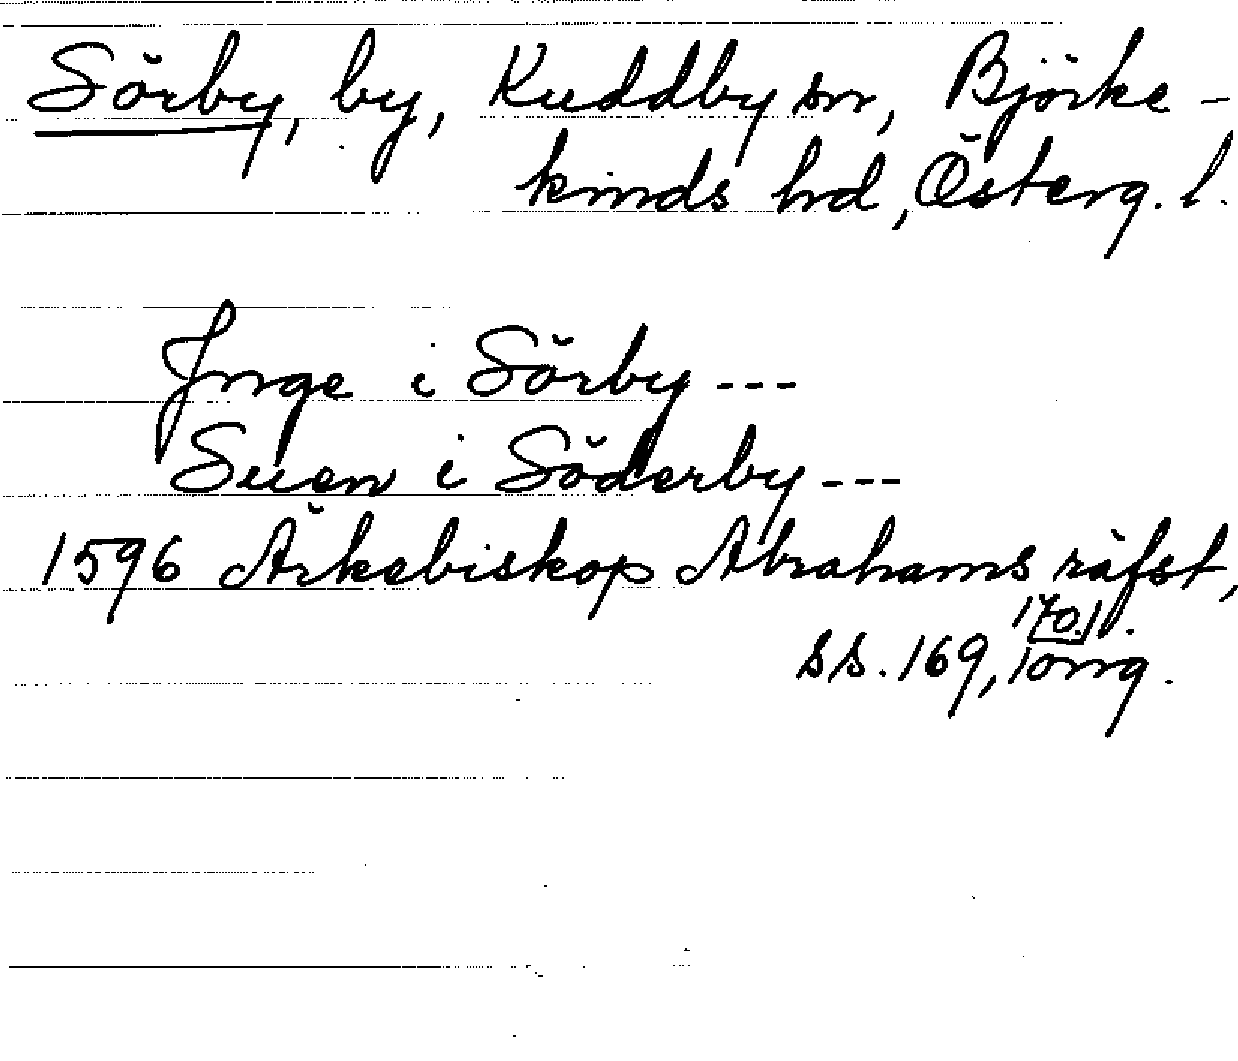 Sörby, by, Kuddby sn, Björke-
kinds hd, Österg. l.
Inge i Sörby ---
Suen i Söderby ---
1596 Ärkebiskop Abrahams räfst,
ss. 169, 170.